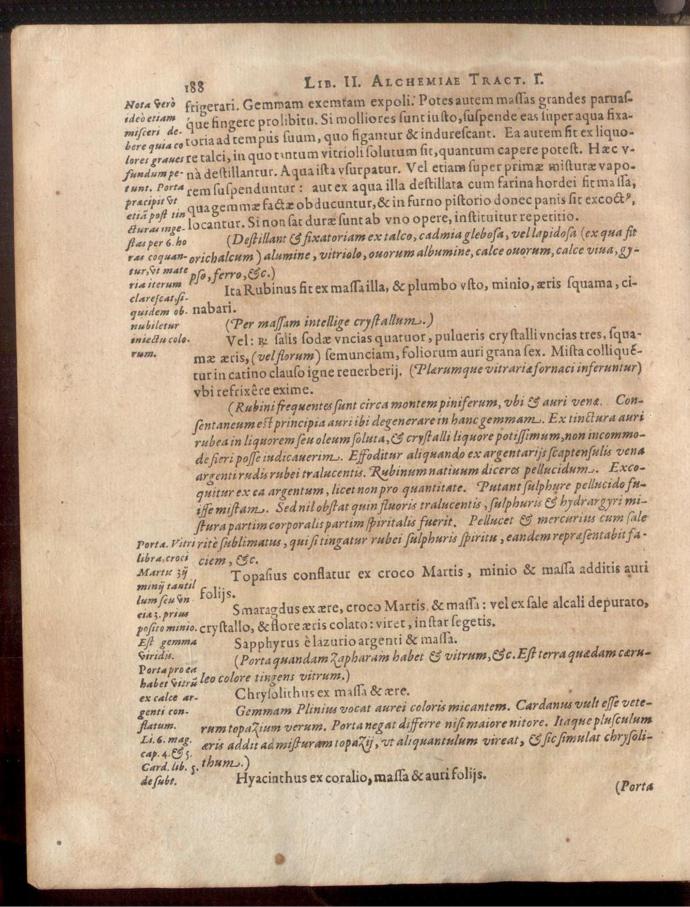 188 LIB. II. ALCHEMIAE TRACT. I.
Nota verò
ideò etiam
misceri de-
bere quia co
lores graues
fundum pe-
tunt. Porta
præcipit vt
etiã post tin
cturas inge-
stas per 6. ho
ras coquan-
tur, vt mate
ria iterum
clarescat, si-
quidem ob-
nubiletur
iniectu colo-
rum.
frigerari. Gemmam exemtam expoli. Potes autem massas grandes paruas-
que fingere pro libitu. Si molliores sunt iusto, suspende eas super aqua fixa-
toria ad tempus suum, quo figantur & indurescant. Ea autem fit ex liquo-
re talci, in quo tantum vitrioli solutum sit, quantum capere potest. Hæc v-
nà destillantur. Aqua ista vsurpatur. Vel etiam super primæ misturæ vapo-
rem suspenduntur: aut ex aqua illa destillata cum farina hordei fit massa,
qua gemmæ factæ obducuntur, & in furno pistorio donec panis sit excoctꝰ,
locantur. Si non sat duræ sunt ab vno opere, instituitur repetitio.
(Destillant & fixatoriam ex talco, cadmia glebosa, vel lapidosa (ex qua fit
orichalcum) alumine, vitriolo, ouorum albumine, calce ouorum, calce viua, gy-
pso, ferro, &c.)
Ita Rubinus fit ex massa illa, & plumbo vsto, minio, æris squama, ci-
nabari.
(Per massam intellige crystallum.)
Vel: ℞ salis sodæ vncias quatuor, pulueris crystalli vncias tres, squa-
mæ æris, (vel florum) semunciam, foliorum auri grana sex. Mista colliquẽ-
tur in catino clauso igne reuerberij. (Plærumque vitrariæ fornaci inferuntur)
vbi refrixêre exime.
(Rubini frequentes sunt circa montem piniferum, vbi & auri venæ. Con-
sentaneum est principia auri ibi degenerare in hanc gemmam. Ex tinctura auri
rubea in liquorem seu oleum soluta, & crystalli liquore potissimum, non incommo-
de fieri posse iudicauerim. Effoditur aliquando ex argentarijs scaptensulis vena
argenti rudis rubei tralucentis. Rubinum natiuum diceres pellucidum. Exco-
quitur ex ea argentum, licet non pro quantitate. Putant sulphure pellucido fu-
isse mistam. Sed nil obstat quin fluoris tralucentis, sulphuris & hydrargyri mi-
stura partim corporalis partim spiritalis fuerit. Pellucet & mercurius cum sale
ritè sublimatus, qui si tingatur rubei sulphuris spiritu, eandem repræsentabit fa-
ciem, &c.
Porta. Vitri
libra, croci
Martis ʒij
minij tantil
lum seu vn
cia 3. prius
posito minio.
Est gemma
viridis.
Porta pro ea
habet vitrũ
ex calce ar-
genti con-
flatum.
Li. 6. mag.
cap. 4. & 5.
Card. lib. 5.
de subt.
Topasius conflatur ex croco Martis, minio & massa additis auri
folijs.
Smaragdus ex ære, croco Martis & massa: vel ex sale alcali depurato,
crystallo, & flore æris colato: viret, instar segetis.
Sapphyrus è lazurio argenti & massa.
(Porta quandam Zapharam habet & vitrum, &c. Est terra quædam cæru-
leo colore tingens vitrum.)
Chrysolithus ex massa & ære.
Gemmam Plinius vocat aurei coloris micantem. Cardanus vult esse vete-
rum topazium verum. Porta negat differre nisi maiore nitore. Itaque plusculum
æris addit ad misturam topazij, vt aliquantulum vireat, & sic simulat chrysoli-
thum.)
Hyacinthus ex coralio, massa & auri folijs.
(Porta